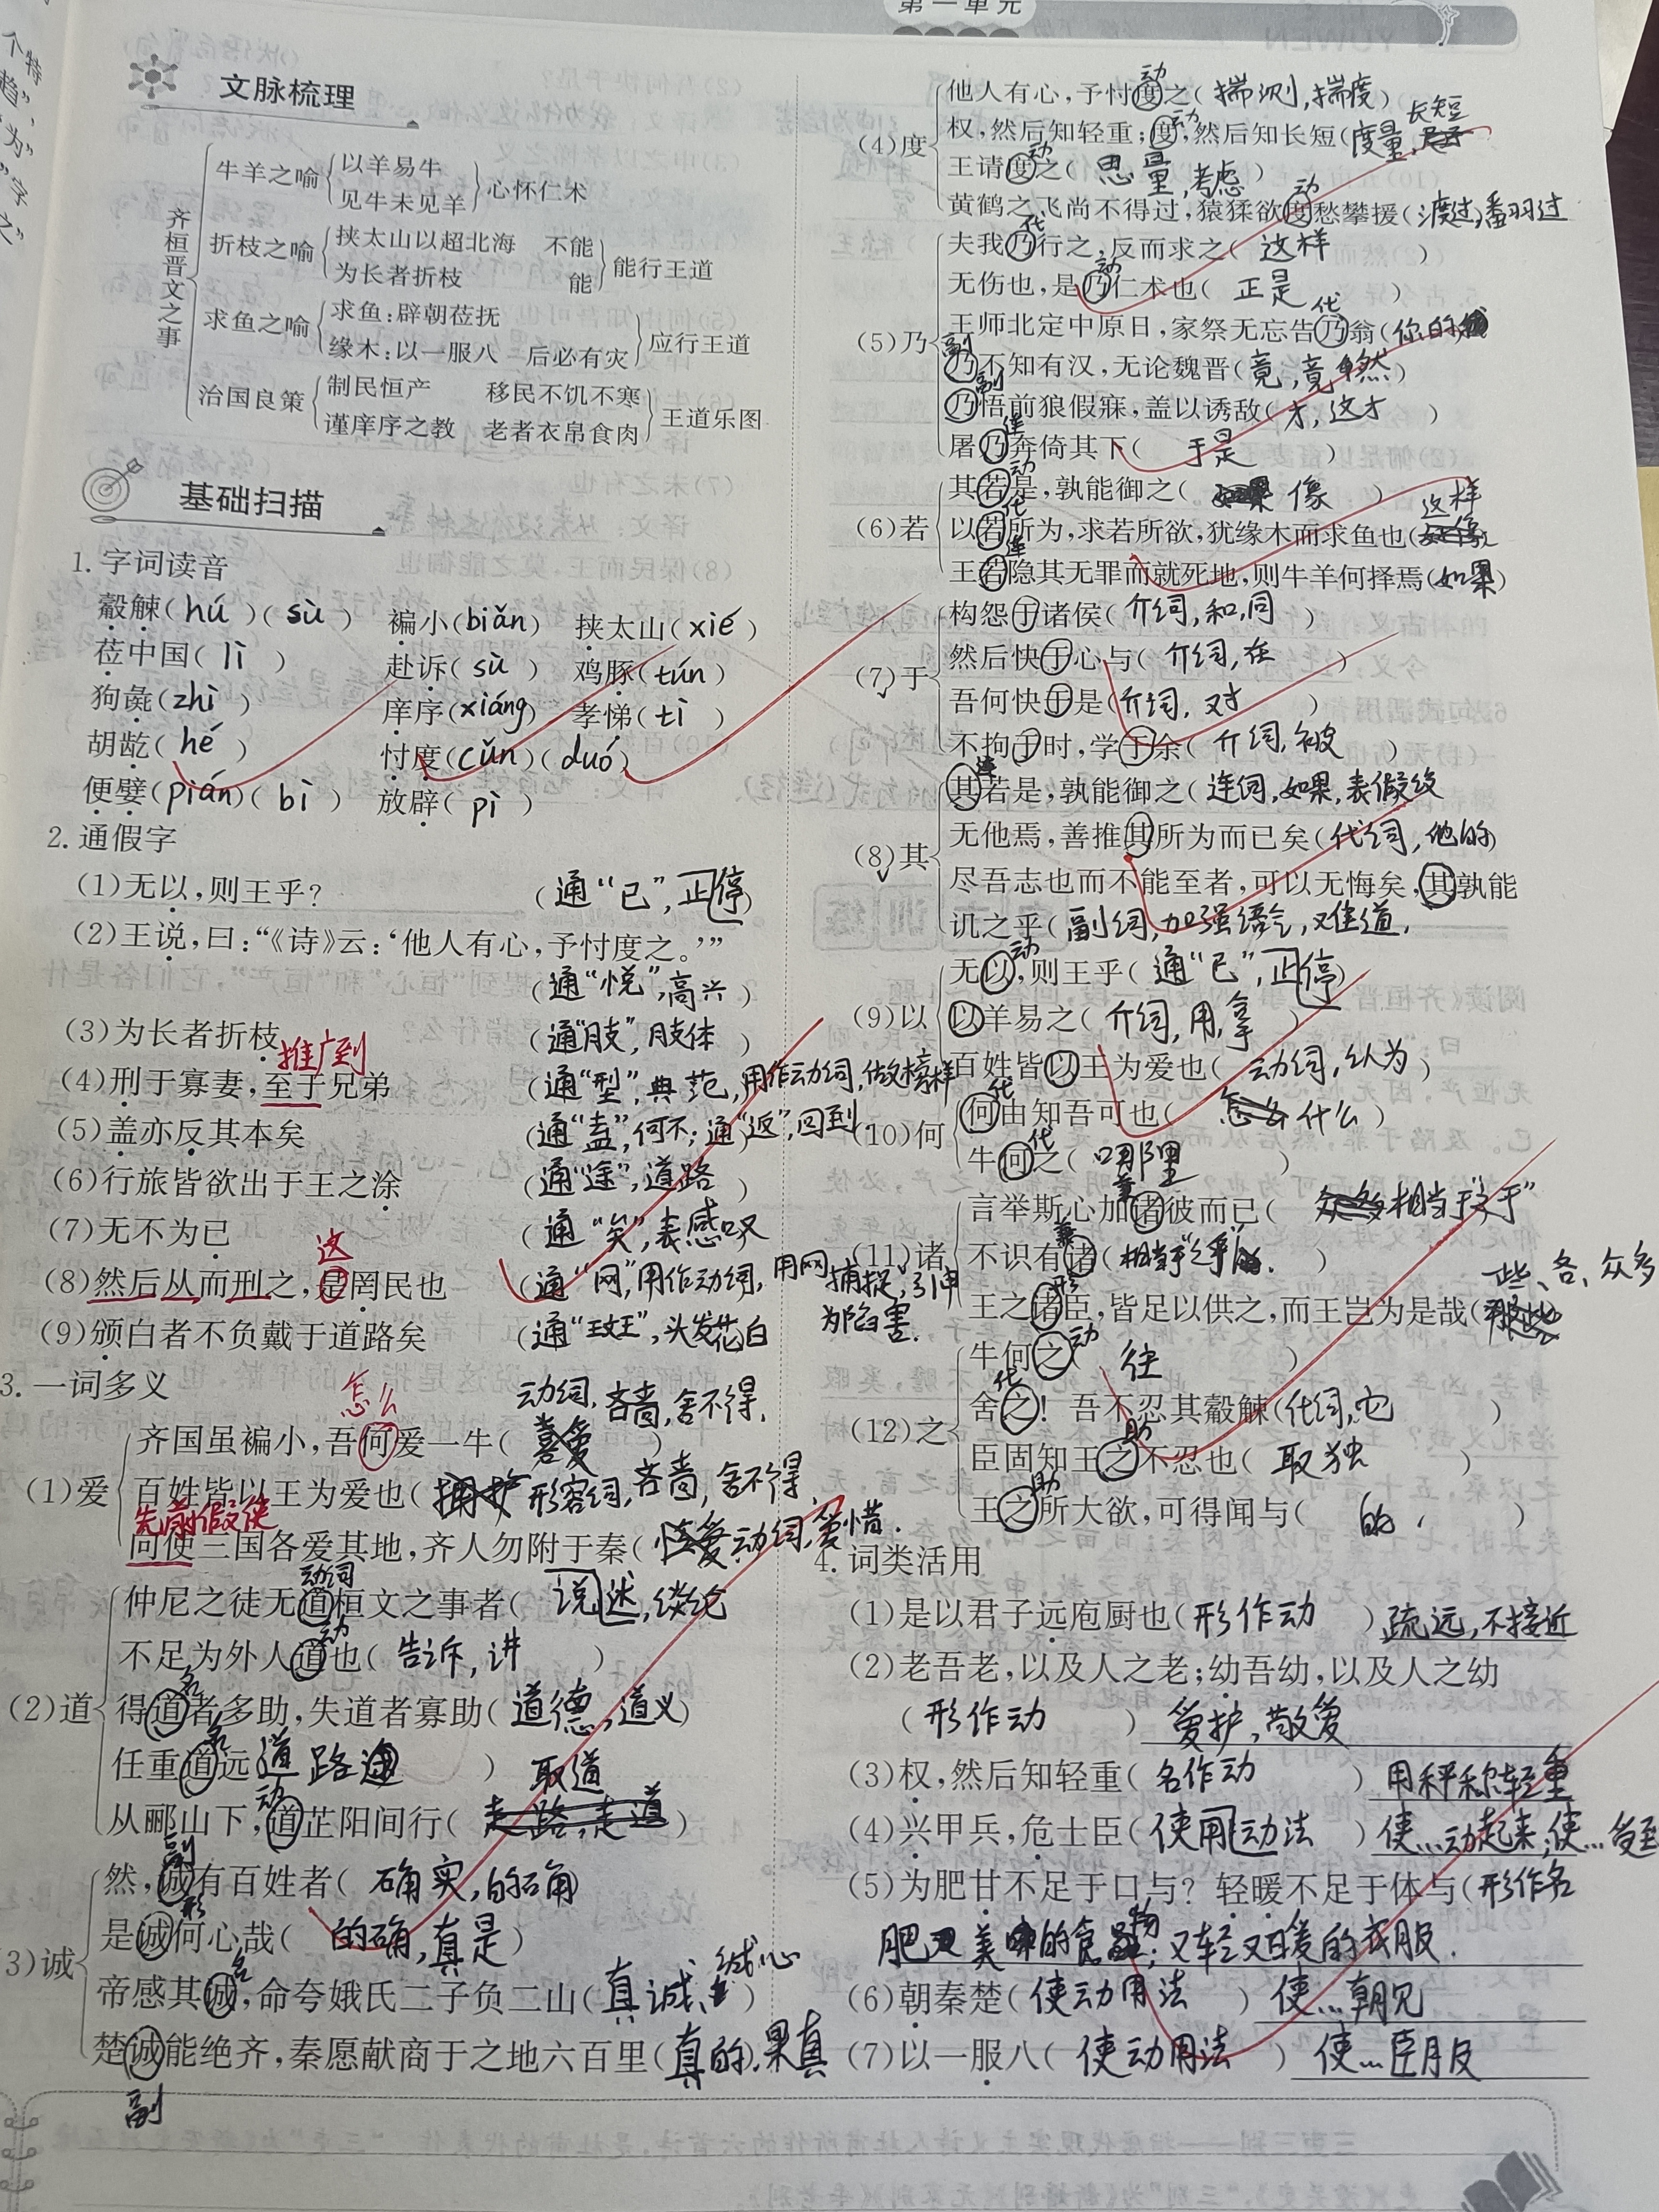 第一单元
文脉梳理
齐桓晋文之事
牛羊之喻 以羊易牛 见牛未见羊 心怀仁术
折枝之喻 挟太山以超北海 不能 为长者折枝 能 能行王道
求鱼之喻 求鱼:辟朝莅抚 缘木:以一服八 后必有灾 应行王道
治国良策 制民恒产 移民不饥不寒 谨庠序之教 老者衣帛食肉 王道乐图
基础扫描
1. 字词读音
觳觫(hú)(sù) 褊小(biǎn) 挟太山(xié)
莅中国(lì) 赴诉(sù) 鸡豚(tún)
狗彘(zhì) 庠序(xiáng) 孝悌(tì)
胡龁(hé) 忖度(cǔn)(duó)
便嬖(pián)(bì) 放辟(pì)
2. 通假字
(1)无以,则王乎? (通“已”,止停)
(2)王说,曰:“《诗》云:‘他人有心,予忖度之。’”
(通“悦”,高兴)
(3)为长者折枝 (通“肢”,肢体)
推广到
(4)刑于寡妻,至于兄弟 (通“型”,典范,用作动词,做榜样
(5)盖亦反其本矣 (通“盍”,何不;通“返”,回到
(6)行旅皆欲出于王之涂 (通“途”,道路)
(7)无不为已 (通“矣”,表感叹
这
(8)然后从而刑之,是罔民也 (通“网”,用作动词,用网捕捉,引申为陷害.
(9)颁白者不负戴于道路矣 (通“斑”,头发花白
3. 一词多义
怎么 动词,吝啬,舍不得,
(1)爱 齐国虽褊小,吾何爱一牛( )
百姓皆以王为爱也( 形容词,吝啬,舍不得,
先前假使
向使三国各爱其地,齐人勿附于秦( 动词,爱惜.
动词
(2)道 仲尼之徒无道桓文之事者(说述,谈论
动
不足为外人道也(告诉,讲)
名
得道者多助,失道者寡助(道德,道义)
名
任重道远 道路 ) 取道
动
从郦山下,道芷阳间行(走路,走道)
副
(3)诚 然,诚有百姓者(确实,的确)
形
是诚何心哉(的确,真是)
名
帝感其诚,命夸娥氏二子负二山(真诚、诚心)
楚诚能绝齐,秦愿献商于之地六百里(真的,果真
副
动
(4)度 他人有心,予忖度之(揣测,揣度)
动 长短
权,然后知轻重;度,然后知长短(度量,
动
王请度之(思量,考虑)
动
黄鹤之飞尚不得过,猿猱欲度愁攀援(渡过,翻过
代
(5)乃 夫我乃行之,反而求之(这样)
动
无伤也,是乃仁术也(正是)
代
王师北定中原日,家祭无忘告乃翁(你的
副
乃不知有汉,无论魏晋(竟,竟然)
副
乃悟前狼假寐,盖以诱敌(才,这才)
连
屠乃奔倚其下(于是)
动
(6)若 其若是,孰能御之(像)
代 这样
以若所为,求若所欲,犹缘木而求鱼也(
连
王若隐其无罪而就死地,则牛羊何择焉(如果)
(7)于 构怨于诸侯(介词,和,同)
然后快于心与(介词,在)
吾何快于是(介词,对)
不拘于时,学于余(介词,被)
连
(8)其 其若是,孰能御之(连词,如果,表假设
无他焉,善推其所为而已矣(代词,他的)
尽吾志也而不能至者,可以无悔矣,其孰能
讥之乎(副词,加强语气,难道,
动
(9)以 无以,则王乎(通“已”,止停)
以羊易之(介词,用,拿)
百姓皆以王为爱也(动词,认为)
代
(10)何 何由知吾可也(什么)
代
牛何之(哪里)
兼
(11)诸 言举斯心加诸彼而已(相当于“之于”
兼
不识有诸(相当于“之乎”.)
形 一些、各、众多
王之诸臣,皆足以供之,而王岂为是哉(
动
(12)之 牛何之(往)
代
舍之!吾不忍其觳觫(代词,它)
助
臣固知王之不忍也(取独)
助
王之所大欲,可得闻与(的,)
4. 词类活用
(1)是以君子远庖厨也(形作动)疏远,不接近
(2)老吾老,以及人之老;幼吾幼,以及人之幼
(形作动)爱护,敬爱
(3)权,然后知轻重(名作动)用秤称轻重
(4)兴甲兵,危士臣(使用动法)使…动起来,使…受到
(5)为肥甘不足于口与?轻暖不足于体与(形作名
肥又美的食物;又轻又暖的衣服.
(6)朝秦楚(使动用法)使…朝见
(7)以一服八(使动用法)使…臣服